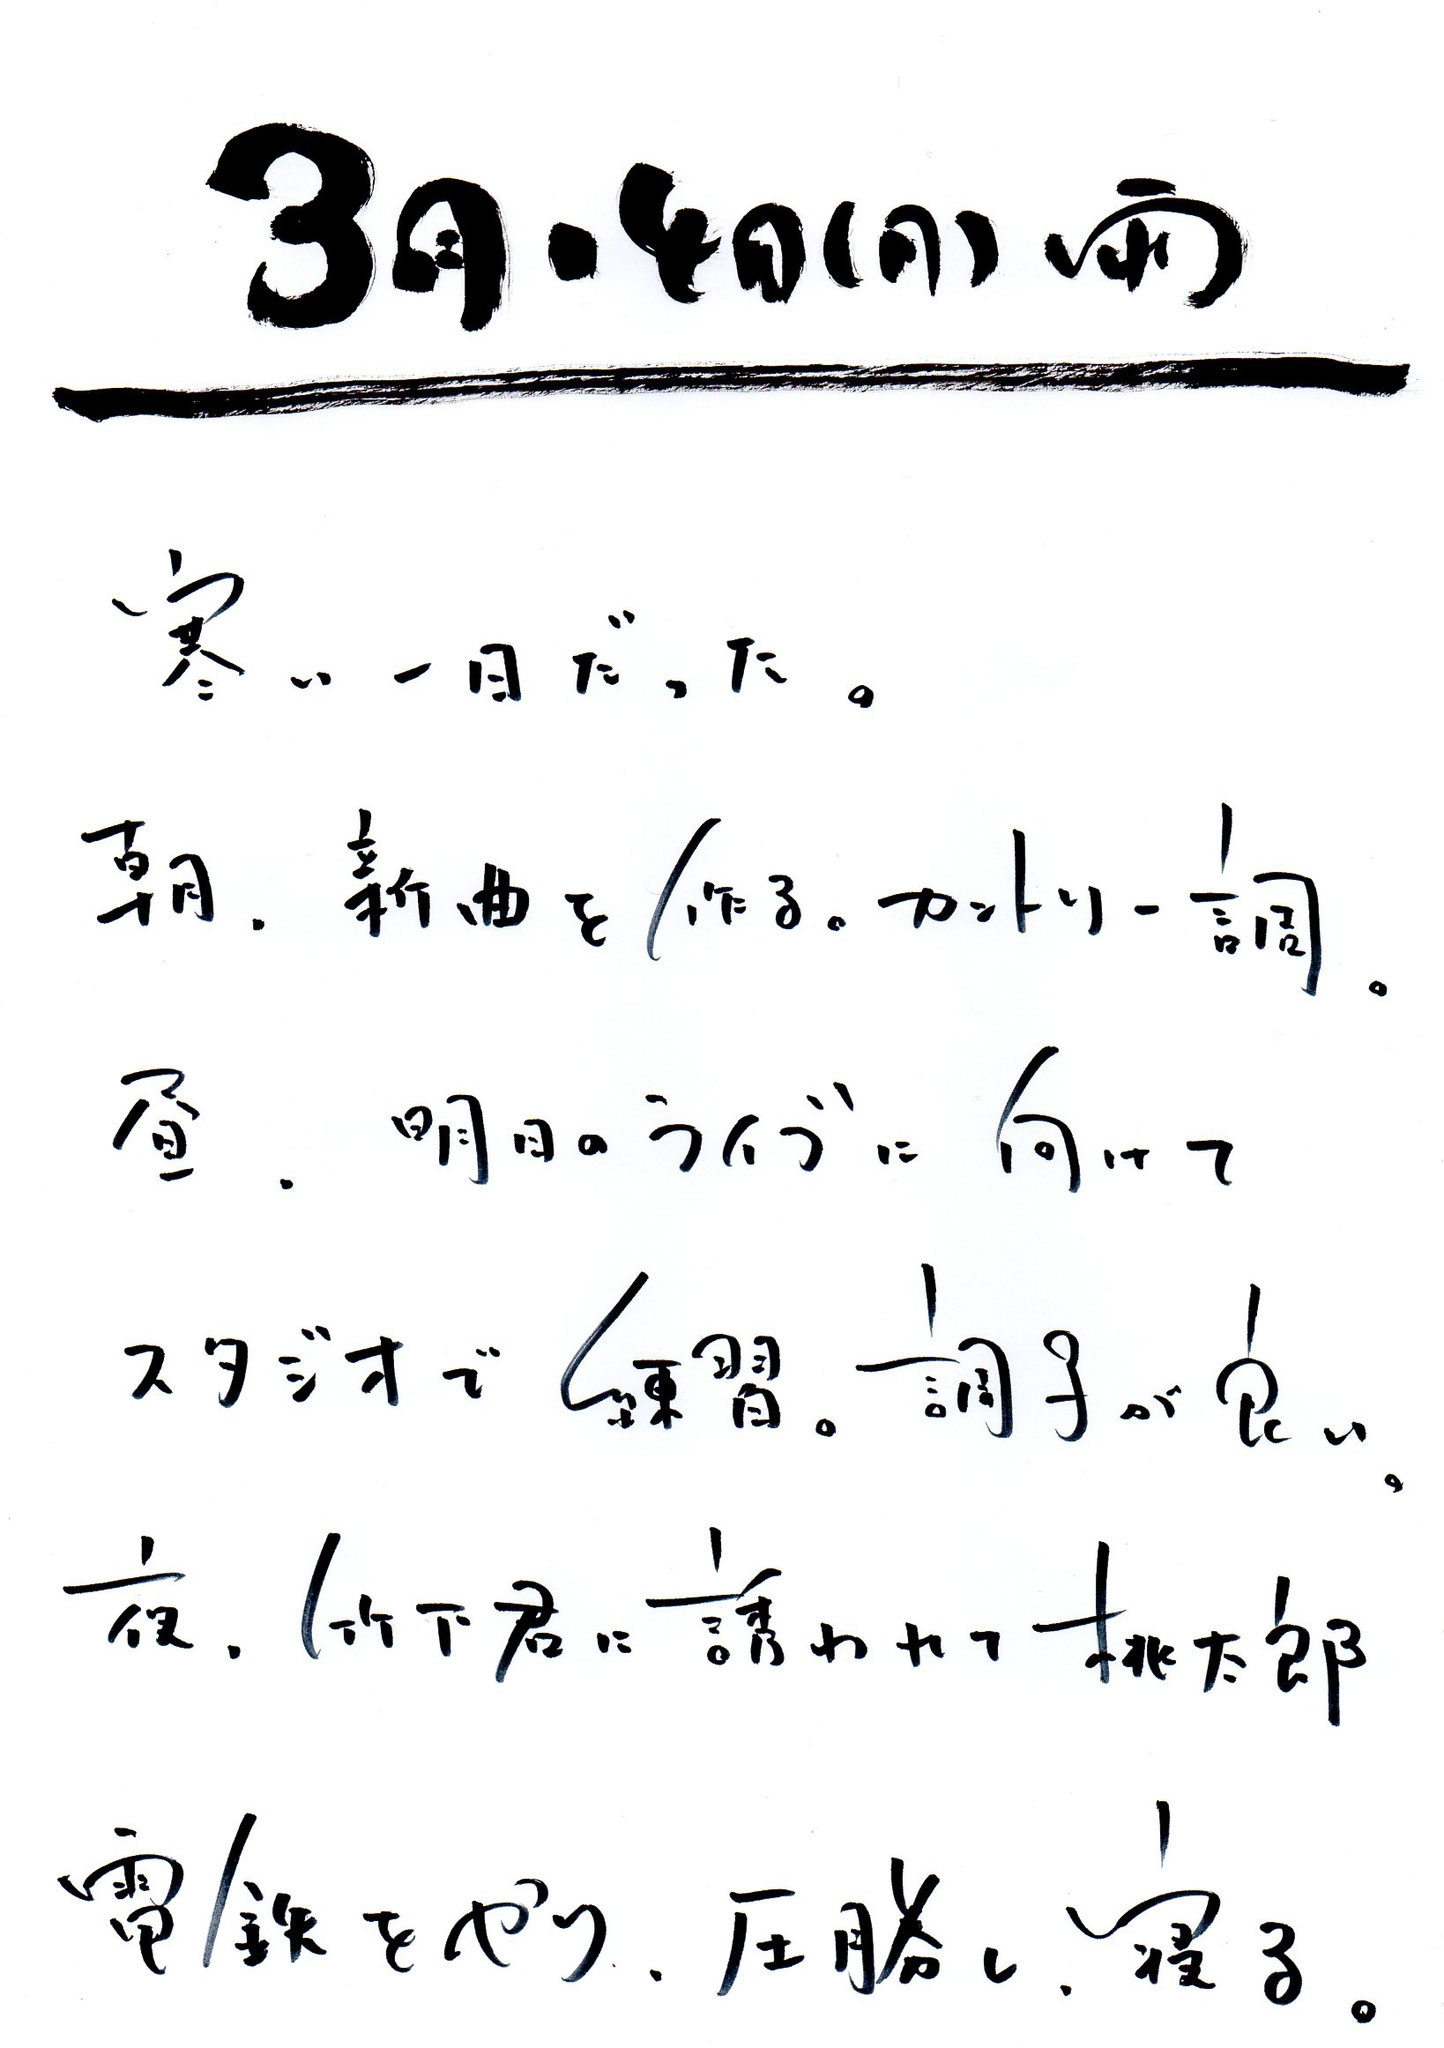 3月・4日(月)雨
寒い一日だった。
朝、新曲を作る。カントリー調。
昼、明日のライブに向けて
スタジオで練習。調子が良い。
夜、竹下君に誘われて桃太郎
電鉄をやり、圧勝し、寝る。